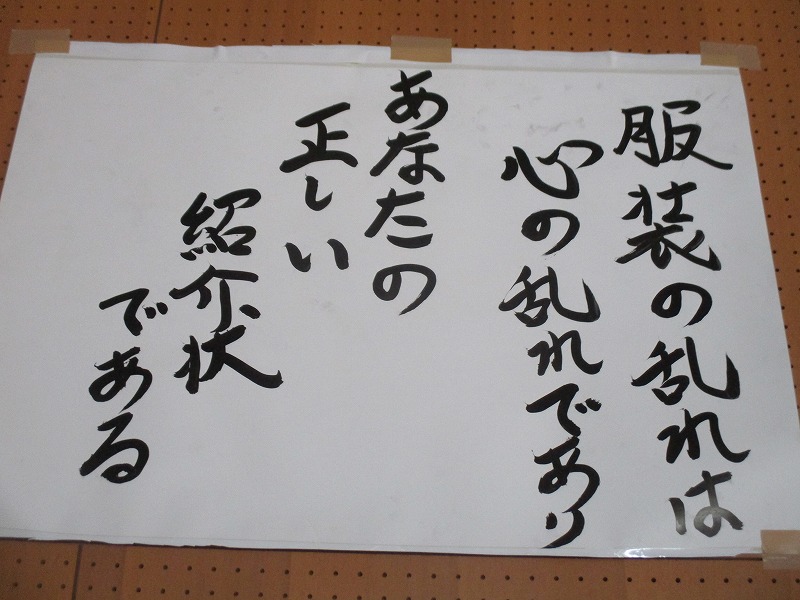 服装の乱れは
心の乱れであり
あなたの
正しい
紹介状
である